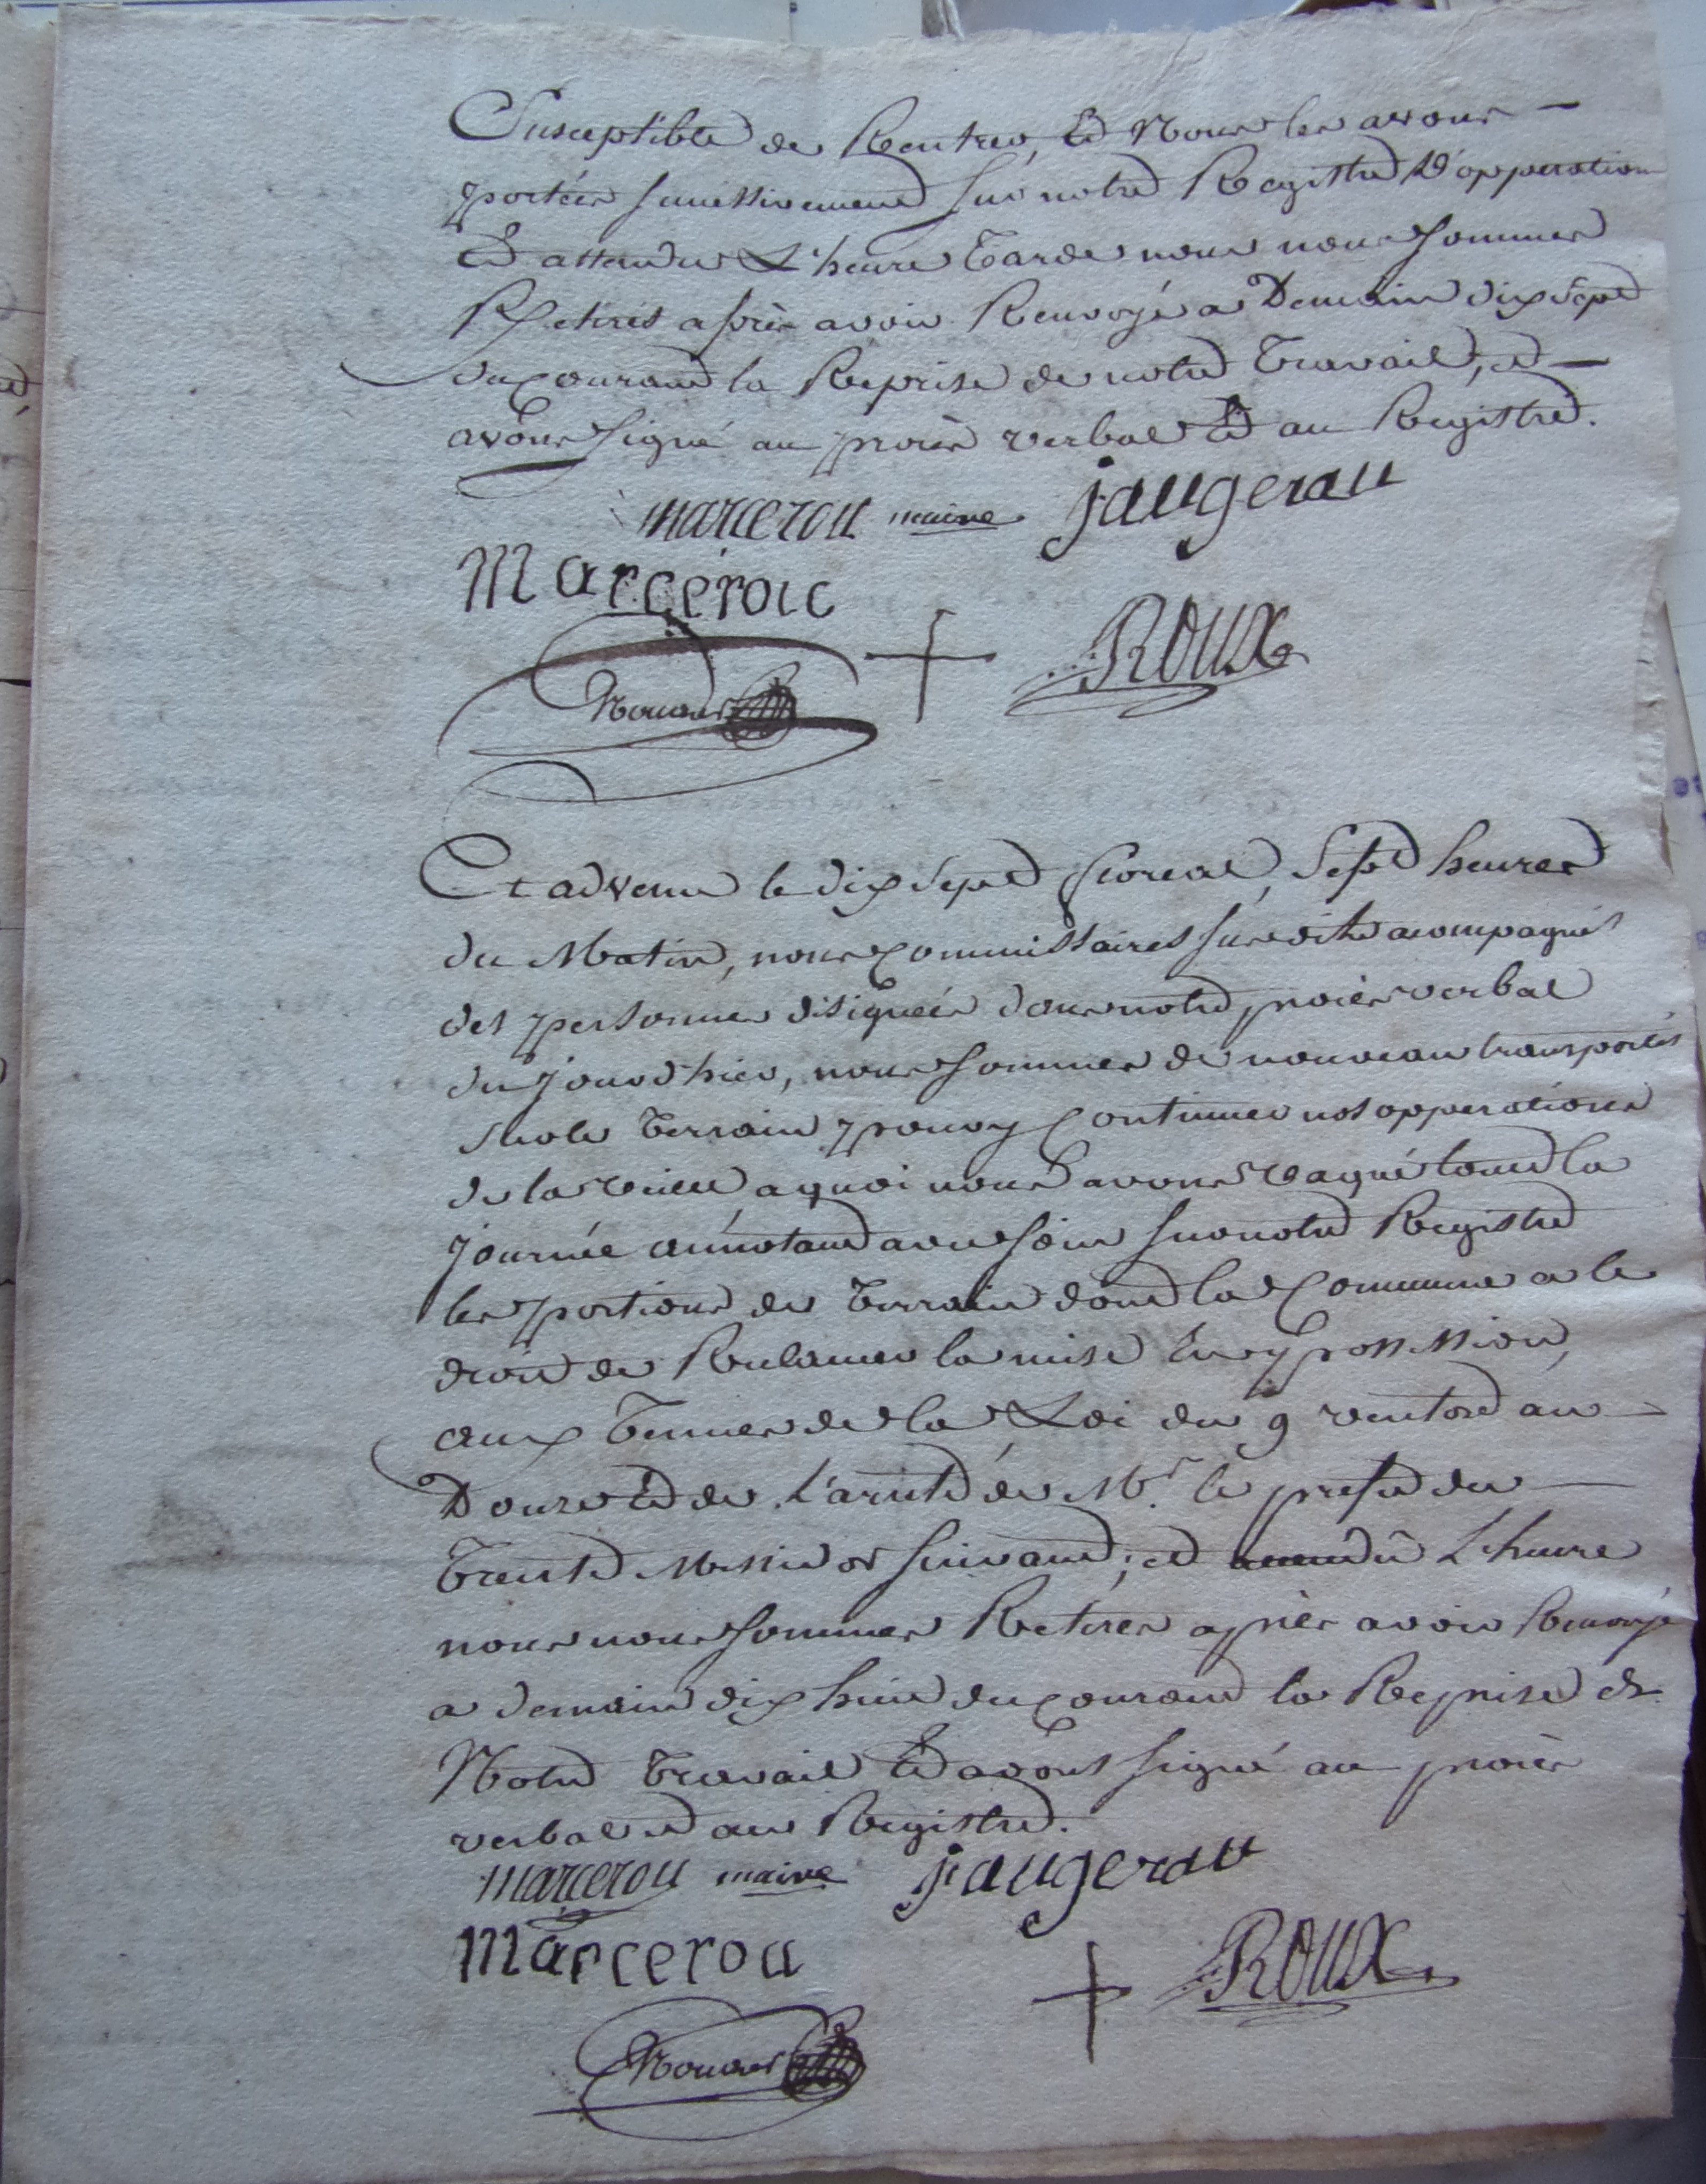 Susceptible de Rentrer, Et Nous les avons —
portées successivement sur notre Registre D'opperation
Et attendu L'heure Tarde nous nous sommes
Retirés après avoir Renvoyé a Demain dix sept
du courant la Reprise de notre Travail, et —
avons signé au procès verbal Et au Registre.
marcerou maire jaugerau
Marcerou
+ ROUX
Et advenu le dix sept floreal, Sept heures
du Matin, nous Commissaires susdits acompagnés
des personnes désignées dans notre procès verbal
du jour d'hier, nous sommes de nouveau transportés
sur le Terrain pour y Continuer nos opperations
de la veille, a quoi nous avons vaqué toute la
journée annotant avec soin sur notre Registre
les portions de Terrain dont la Commune a le
droit de Reclamer la mise En possession,
aux Termes de la Loi du 9 ventose an —
Douze Et de L'arrêté de Mr. le prefet du —
Trente Messidor suivant; et attendu L'heure
nous nous sommes Retirés après avoir Renvoyé
a demain dix huit du courant la Reprise de
Notre Travail Et avons signé au procès
verbal et au Registre.
marcerou maire jaugerau
Marcerou
+ ROUX